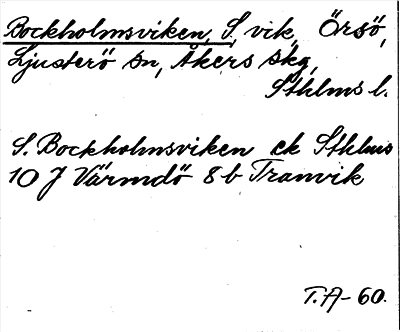 Bockholmsviken, S, vik, Örsö,
Ljusterö sn, Åkers skg,
Sthlms l.
S. Bockholmsviken ek Sthlms
10 J Värmdö 8 b Tranvik
T.A-60.